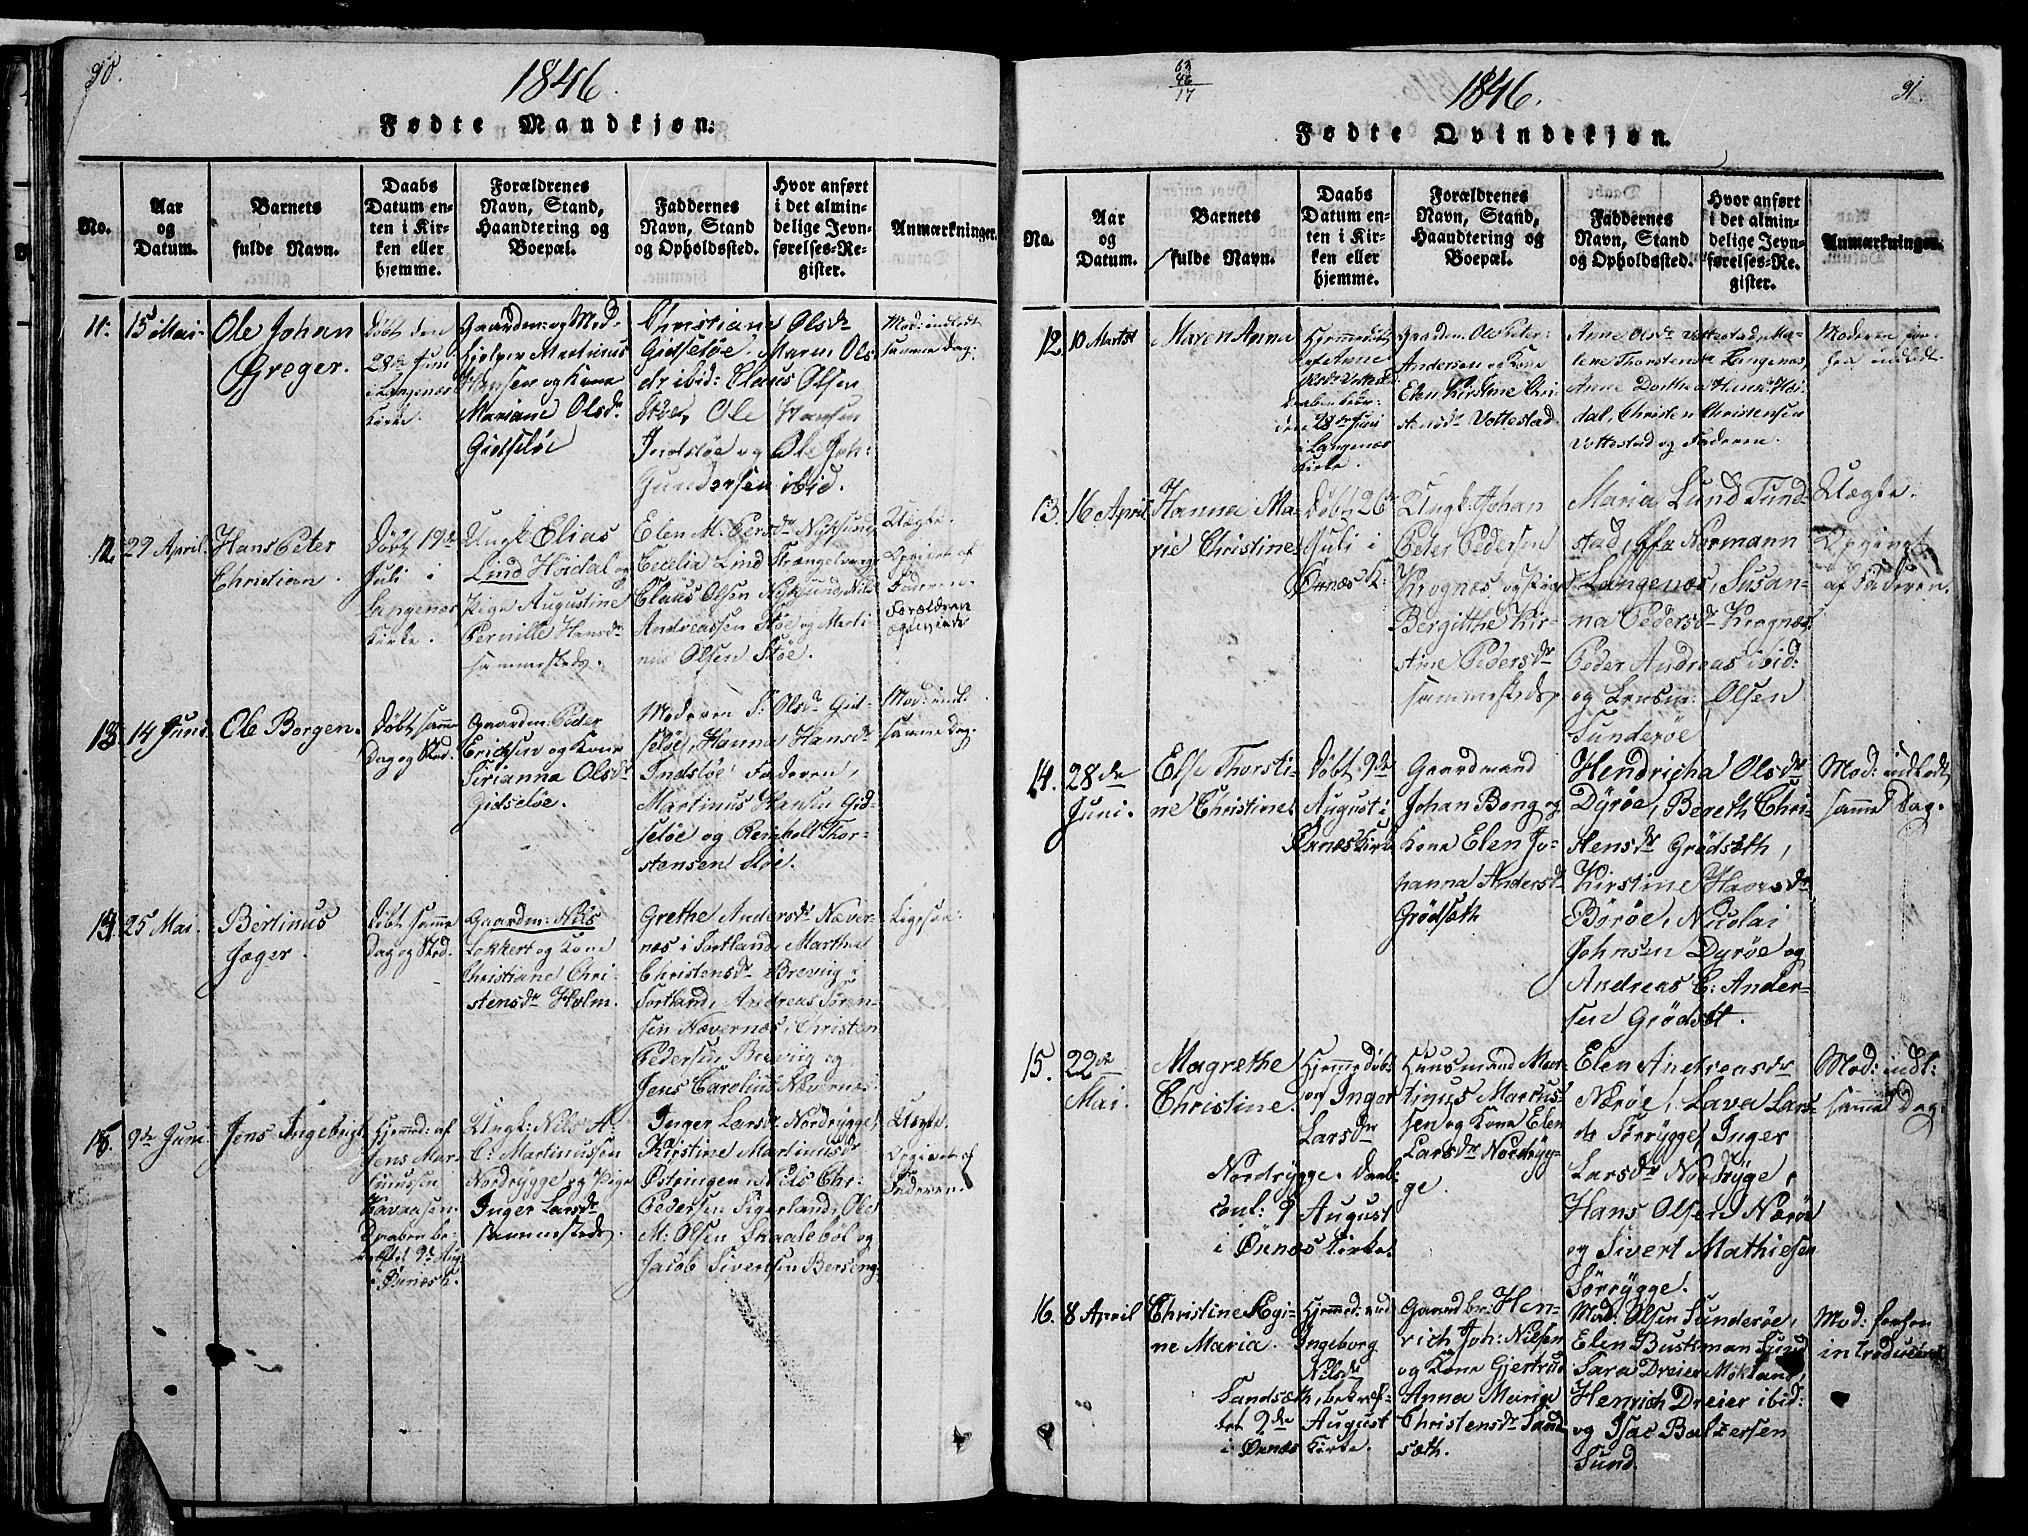 90.
1846.
Fødte Mandkjøn.
No.
Aar
og
Datum.
Barnets
fulde Navn.
Daabs
Datum en-
ten i Kir-
ken eller
hjemme.
Forældrenes
Navn, Stand,
Haandtering og
Boepæl.
Faddernes
Navn, Stand
og Opholdssted.
Hvor anført
i det almin-
delige Jevn-
førelses-Re-
gister.
Anmærkninger.
11.
15 Mai.
Ole Johan
Greger.
Døbt den
28de Juni
i Langenes
Kirke.
Gaardm: og Med-
hjelper Martinus
Hansen og Kone
Mariane Olsdr
Gidsløe
Christiane Olsdr
Gidseløe. Maren Ols-
dr ibid: Claus Olsen
Ole Hansen
Indsløe og Ole Joh:
Gundersen ibid.
Mod: indledt
samme Dag.
12.
29 April.
Hans Peter
Christian.
Døbt 19de
Juli i
Langenes
Kirke.
Ungk Elias
Lind Høidal og
Pige Augustine
Pernille Hansdr
sammesteds.
Elen M. Persdr Nyksund,
Cecelia Lind Strængelvaag,
Claus Olsen Nyksund, Nils
Andreassen Støe og Marti-
nus Olsen Støe.
Uægte.
Opgivet af
Faderen.
Forældrene
ægteviede
13.
14 Juni.
Ole Borgen.
Døbt samme
Dag og Sted.
Gaardm: Peder
Erichsen og Kone
Sirianna Olsdr
Gidseløe.
Moderen S: Olsdr Gid-
seløe, Hanna Hansdr
Indsløe Faderen,
Martinus Hansen Gid-
seløe og Reinholt Thor-
stensen Støe.
Mod: indl.
samme Dag.
14.
25 Mai.
Bertinus
Jæger.
Døbt samme
Dag og Sted.
Gaardm: Nils
Lokkert og Kone
Christiane Chri-
stensdr Holm.
Grethe Andersdr Næver-
næs i Sortland, Marthe
Christensdr Breviig i
Sortland, Andreas Søren-
sen Nævernæs, Christen
Pedersen Breviig og
Jens Carolius Nævernæs
Ligesaa.
15.
9de Juni
Jens Ingebrigt
Hjemmed: af
Jens Mar-
Daaben be-
kræftet 9de Aug
i Øxnæs K.
Ungk: Nils A.
C: Martinussen
Nordrygge og Pige
Inger Larsdr
sammesteds.
Inger Larsdr Nordrygge,
Kirstine Martinusdr
Østringen Nils Chr:
Pedersen Sigerland, Ole
M: Olsen Skaalebøl og
Jacob Sivertsen Berseng
Uægte.
Opgivet af
Faderen.
63
46
17
1846.
91.
Fødte Qvindekjøn.
No.
Aar
og
Datum.
Barnets
fulde Navn.
Daabs
Datum en-
ten i Kir-
ken eller
hjemme.
Forældrenes
Navn, Stand,
Haandtering og
Boepæl.
Faddernes
Navn, Stand
og Opholdssted.
Hvor anført
i det almin-
delige Jevn-
førelses-Re-
gister.
Anmærkninger.
12.
10 Martst
Maren Anna
Hjemmedøbt
af Anne
Olsdr Vottestad
Daaben bekr:
den 28de Juni
i Langenæs
Kirke.
Gaardm: Ole Peter
Andersen og Kone
Elen Kirstine Chri-
stensdr Vottestad
Anne Olsdr Vottestad, Ma-
lene Thorstensdr Langenæs,
Anne Dorthea Hansdr Høi-
dal, Christen Christensen
Vottestad og Faderen.
Moderen før-
hen indledt.
13.
16 April
Hanna Ma-
rie Christine
Døbt 26de
Juli i
Øxnæs K:
Ungk: Johan
Peter Pedersen
Krognes og Pige
Bergitthe Kir-
stine Pedersdr
sammesteds
Maria Lund Tund-
stad, Normann
Langenæs, Susan-
na Pedersdr Krognæs,
Peder Andreas ibid:
og Olsen
Sunderøe
Uægte.
Opgivet
af Faderen.
14.
28de
Juni.
Else Thorsti-
ne Christine.
Døbt 9de
August i
Øxnæs Kirke
Gaardmand
Johan Bong og
Kone Elen Jo-
hanna Andersdr
Grødsæth
Hendricha Olsdr
Dyrøe, Bereth Chri-
stensdr Grødsæth,
Kirstine Hansdr
Børøe, Nicolai
Johnsen Dyrøe og
Andreas C: Ander-
sen Grødsæt.
Mod: indledt
samme Dag.
15.
22de
Mai.
Magrethe
Christine.
Hjemmedøbt
af Inger
Larsdr
Nordrygge. Daab:
conf: 9 August
i Øxnæs Kirke.
Huusmand Mar-
tinus Marcus-
sen og Kone Elen
Larsdr Nordryg-
ge.
Elen Andreasdr
Nærøe, Lava Lars-
dr Sørrygge, Inger
Larsdr Nordryge,
Hans Olsen Nærøe
og Sivert Mathiesen
Sørrygge.
Mod: indl:
samme Dag.
16.
8 April
Christine Regi-
ne Maria.
Hjemmed: ved
Ingeborg
Nilsdr
Sandsæth, bekræf-
tet 9de August
i Øxnæs Kirke.
Gaardbr: Hen-
rich Joh: Nilsen
og Kone Gjertrud
Anna Maria
Christensdr Sand-
sæth.
Mad: Olsen Sunderøe,
Elen Buschman Sund
Sara Dreier Mokland,
Henrich Dreier ibid:
og Isac Baltzersen
Sund.
Mod: forhen
introduceret